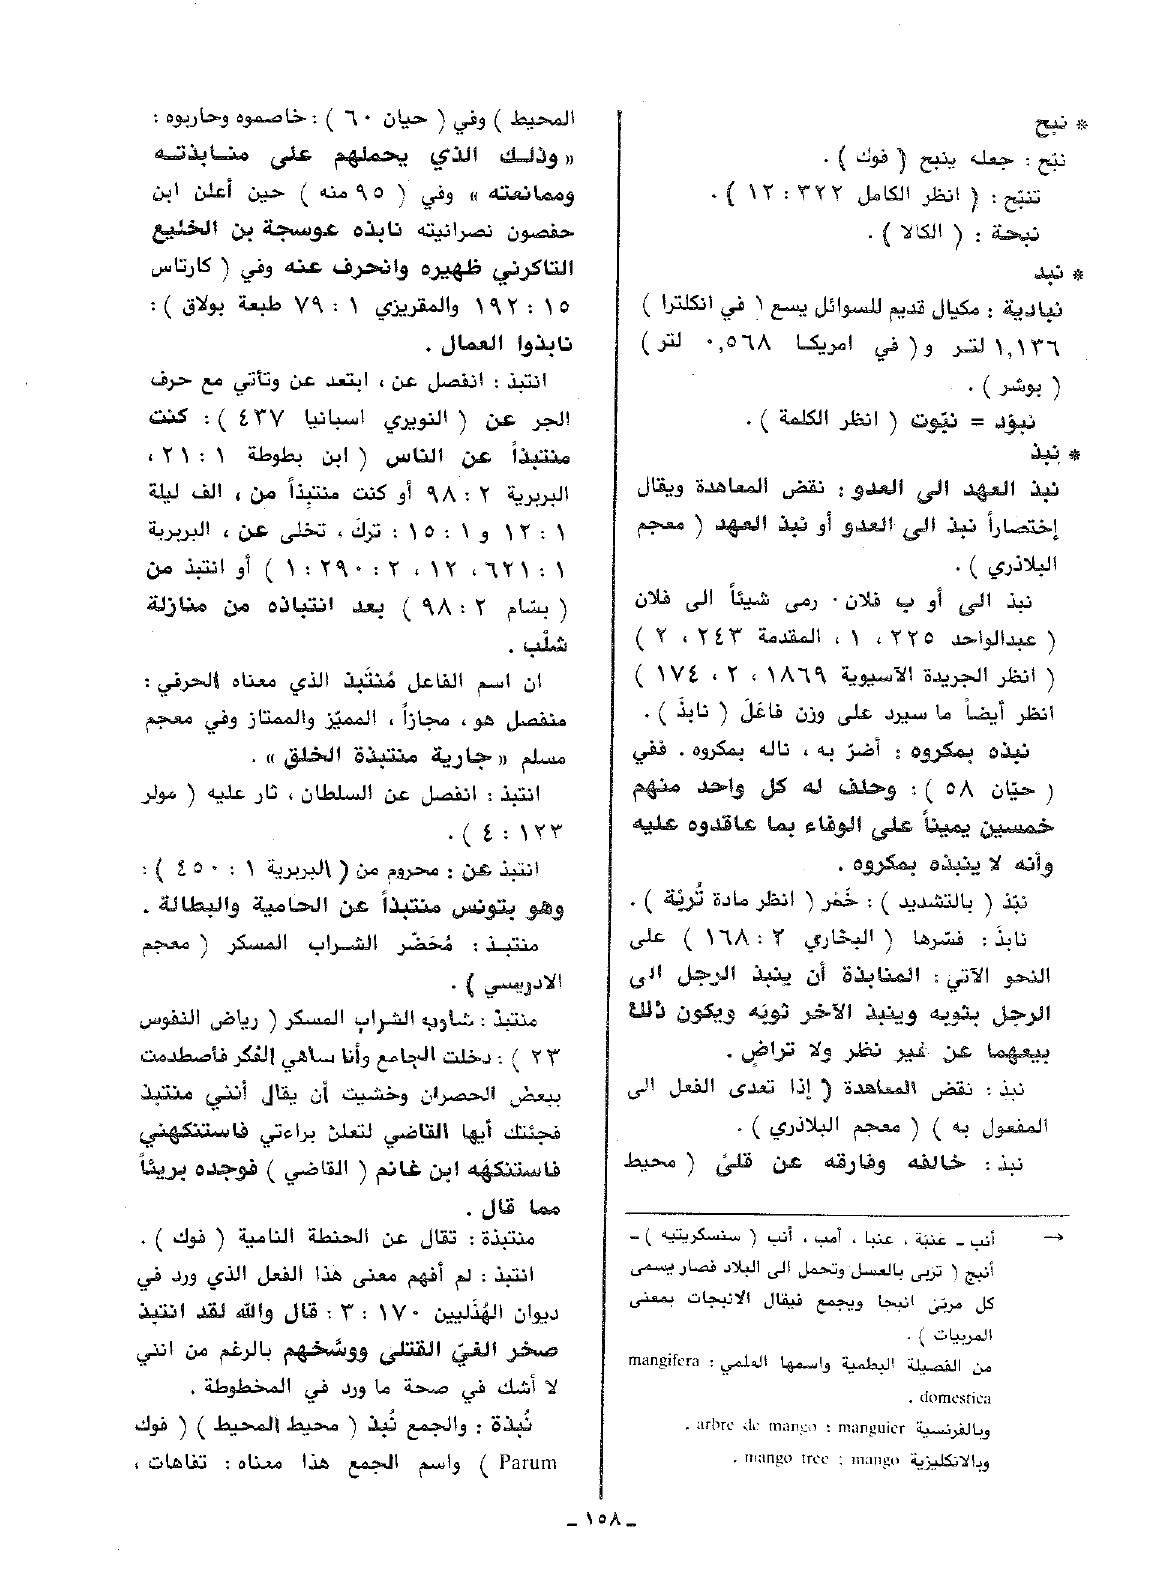 * نبح
نبّح : جعله ينبح ( فوك ) .
تنبّح : ( انظر الكامل ٣٢٢ : ١٢ ) .
نبحة : ( الكالا ) .
* نبد
نبادية : مكيال قديم للسوائل يسع ( في انكلترا )
١,١٣٦ لتر و ( في امريكا ٠,٥٦٨ لتر )
( بوشر ) .
نبوّد = نبّوت ( انظر الكلمة ) .
* نبذ
نبذ العهد الى العدو : نقض المعاهدة ويقال
إختصاراً نبذ الى العدو أو نبذ العهد ( معجم
البلاذري ) .
نبذ الى أو ب فلان . رمى شيئاً الى فلان
( عبدالواحد ٢٢٥ ، ١ ، المقدمة ٢٤٣ ، ٢ )
( انظر الجريدة الآسيوية ١٨٦٩ ، ٢ ، ١٧٤ )
انظر أيضاً ما سيرد على وزن فاعَلَ ( نابذَ ) .
نبذه بمكروه : أضرّ به ، ناله بمكروه . ففي
( حيّان ٥٨ ) : وحلف له كل واحد منهم
خمسين يميناً على الوفاء بما عاقدوه عليه
وأنه لا ينبذه بمكروه .
نبّذ ( بالتشديد ) : خَمّر ( انظر مادة تُربّة ) .
نابذَ : فسّرها ( البخاري ٢ : ١٦٨ ) على
النحو الآتي : المنابذة أن ينبذ الرجل الى
الرجل بثوبه وينبذ الآخر ثوبَه ويكون ذلك
بيعهما عن غير نظر ولا تراضٍ .
نبذ : نقض المعاهدة ( إذا تعدى الفعل الى
المفعول به ) ( معجم البلاذري ) .
نبذ : خالفه وفارقه عن قلىً ( محيط
→ أنب ـ عنبَة ، عنبا ، أمب ، أنب ( سنسكريتيه ) ـ
أنبج ( تربى بالعسل وتحمل الى البلاد فصار يسمى
كل مربّى انبجا ويجمع فيقال الانبجات بمعنى
المربيات ) .
من الفصيلة البطمية واسمها العلمي : mangifera
domestica .
وبالفرنسية arbre de mango : manguier .
وبالانكليزية mango tree : mango .
المحيط ) وفي ( حيان ٦٠ ) : خاصموه وحاربوه :
« وذلك الذي يحملهم على منابذته
وممانعته » وفي ( ٩٥ منه ) حين أعلن ابن
حفصون نصرانيته نابذه عوسجة بن الخليع
التاكرني ظهيره وانحرف عنه وفي ( كارتاس
١٥ : ١٩٢ والمقريزي ١ : ٧٩ طبعة بولاق ) :
نابذوا العمال .
انتبذ : انفصل عن ، ابتعد عن وتأتي مع حرف
الجر عن ( النويري اسبانيا ٤٣٧ ) : كنت
منتبذاً عن الناس ( ابن بطوطة ١ : ٢١ ،
البربرية ٢ : ٩٨ أو كنت منتبِذاً من ، الف ليلة
١ : ١٢ و ١ : ١٥ : تركَ ، تخلى عن ، البربرية
١ : ٦٢١ ، ١٢ ، ٢ : ٢٩٠ : ١ ) أو انتبذ من
( بسّام ٢ : ٩٨ ) بعد انتباذه من منازلة
شلْب .
ان اسم الفاعل مُنتَبِذ الذي معناه الحرفي :
منفصل هو ، مجازاً ، المميّز والممتاز وفي معجم
مسلم « جارية منتبذة الخلق » .
انتبذ : انفصل عن السلطان ، ثار عليه ( مولر
١٢٣ : ٤ ) .
انتبذ عن : محروم من ( البربرية ١ : ٤٥٠ ) :
وهو بتونس منتبذاً عن الحامية والبطالة .
منتبذ : مُحَضّر الشراب المسكر ( معجم
الادريسي ) .
منتبذ : شاوبه الشراب المسكر ( رياض النفوس
٢٣ ) : دخلت الجامع وأنا ساهي الفكر فأصطدمت
ببعض الحصران وخشيت أن يقال أنني منتبذ
فجئتك أيها القاضي لتعلن براءتي فاستنكهني
فاستنكَهَه ابن غانم ( القاضي ) فوجده بريئاً
مما قال .
منتبذة : تقال عن الحنطة النامية ( فوك ) .
انتبذ : لم أفهم معنى هذا الفعل الذي ورد في
ديوان الهُذَليين ١٧٠ : ٣ : قال والله لقد انتبذ
صخر الغيّ القتلى ووشّحهم بالرغم من انني
لا أشك في صحة ما ورد في المخطوطة .
نُبذة : والجمع نُبذ ( محيط المحيط ) ( فوك
Parum ) واسم الجمع هذا معناه : تفاهات ،
ـ ١٥٨ ـ